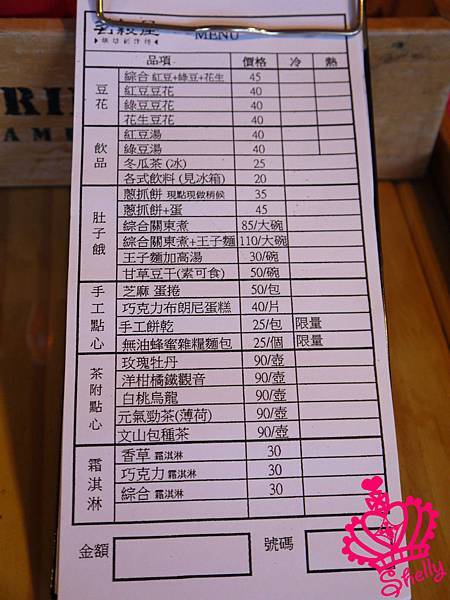 MENU
品項 價格 冷 熱
豆花
綜合 紅豆+綠豆+花生 45
紅豆豆花 40
綠豆豆花 40
花生豆花 40
飲品
紅豆湯 40
綠豆湯 40
冬瓜茶 (冰) 25
各式飲料 (見冰箱) 20
肚子餓
蔥抓餅 現點現做稍候 35
蔥抓餅+蛋 45
綜合關東煮 85/大碗
綜合關東煮+王子麵 110/大碗
王子麵加高湯 30/碗
甘草豆干(素可食) 50/碗
手工點心
芝麻 蛋捲 50/包
巧克力布朗尼蛋糕 40/片
手工餅乾 25/包 限量
無油蜂蜜雜糧麵包 25/個 限量
茶附點心
玫瑰牡丹 90/壺
洋柑橘鐵觀音 90/壺
白桃烏龍 90/壺
元氣勁茶(薄荷) 90/壺
文山包種茶 90/壺
霜淇淋
香草 霜淇淋 30
巧克力 霜淇淋 30
綜合 霜淇淋 30
金額 號碼
Shelly